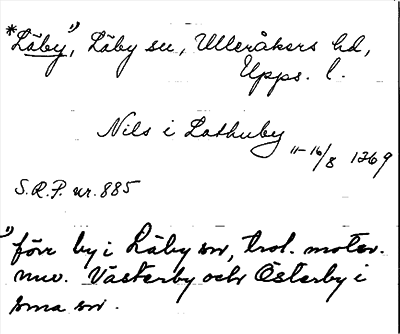 *Läby¹⁾, Läby sn, Ulleråkers hd,
Upps. l.
Nils i Lathuby
11-16/8 1369
S.R.P. nr. 885
¹⁾ förr by i Läby sn, trol. motsv.
nuv. Västerby och Österby i
sma sn.